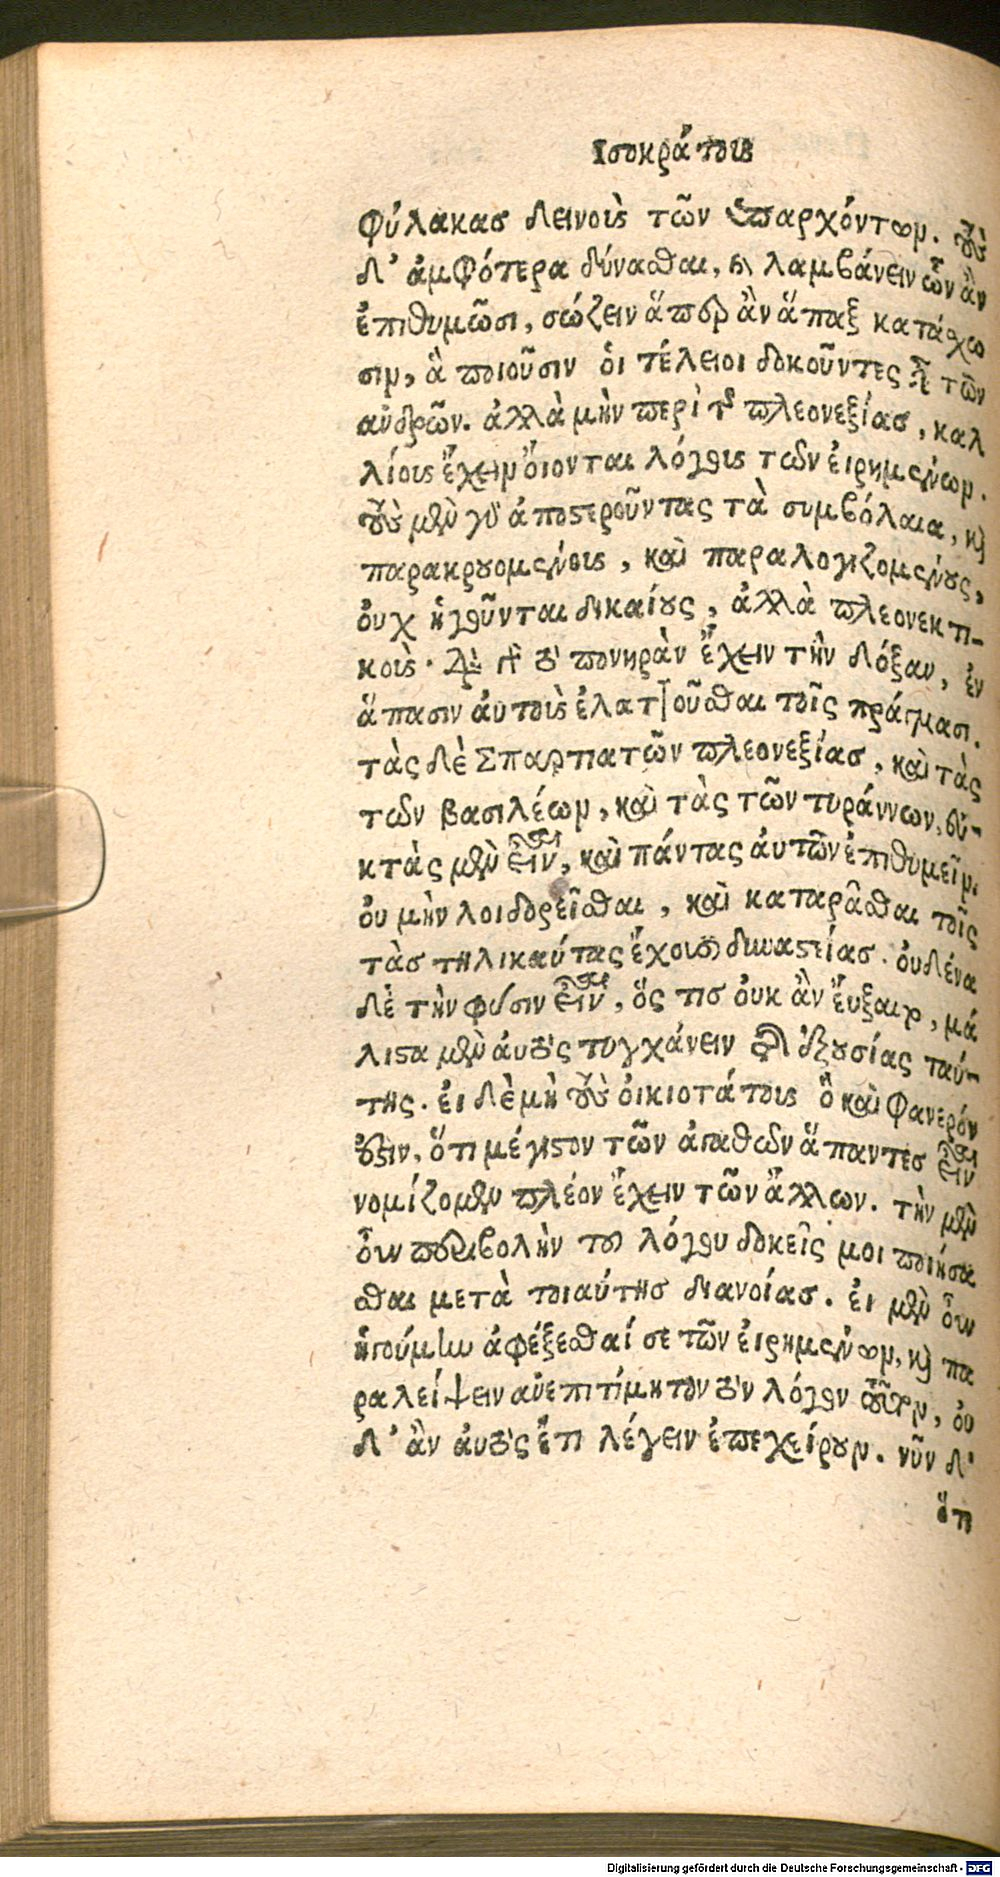 Ισοκράτους
φύλακας δεινοὺς τῶν ὑπαρχόντων. τοὺς
δ' ἀμφότερα δύνασθαι, καὶ λαμβάνειν ὧντ' ἂν
ἐπιθυμῶσι, σώζειν ἅπερ ἂν ἅπαξ κατάσχω
σιν, ἃ ποιοῦσιν ὁι τέλειοι δοκοῦντες εἶναι τῶν
ανδρῶν. ἀλλὰ μὴν περὶ τῆς πλεονεξίας, καλ
λίους ἔχειν ὄιονται λόγους τῶν ἐιρημένων.
τοὺς μὲν γὰρ ἀποστεροῦντας τὰ συμβόλαια, καὶ
παρακρουομένους, καὶ παραλογιζομένους,
ὀυχ ἡγοῦνται δικαίους, ἀλλὰ πλεονεκτι-
κοὺς. διὰ γὰρ τὸ πονηρὰν ἔχειν τὴν δόξαν, ἐν
ἅπασιν ἀυτοὺς ἐλαττοῦσθαι τοῖς πράγμασι.
τὰς δὲ Σπαρτιατῶν πλεονεξίας, καὶ τὰς
τῶν βασιλέων, καὶ τὰς τῶν τυράννων, ἐυ-
κτὰς μὲν εἶναι, καὶ πάντας ἀυτῶν ἐπιθυμεῖν.
ὀυ μὴν λοιδορεῖσθαι, καὶ καταρᾶσθαι τοῖς
τὰς τηλικαύτας ἔχουσι δυναστείας. ὀυδένα
δὲ τὴν φύσιν εἶναι, ὅς τις ὀυκ ἂν ἔυξαιτο, μά
λιστα μὲν ἀυτὸς τυγχάνειν τῆς ἐξουσίας ταύ-
της. ἐι δὲ μὴ τοὺς ὀικιοτάτους ὃ καὶ φανερόν
ἐστιν, ὅτι μέγιστον τῶν ἀγαθῶν ἅπαντες εἶναι
νομίζομεν πλέον ἔχειν τῶν ἄλλων. τὴν μὲν
ὀῦν περιβολὴν τοῦ λόγου δοκεῖς μοι ποιήσα
σθαι μετὰ τοιαύτης διανοίας. ἐι μὲν ὀῦν
ἡγούμην ἀφέξεσθαί σε τῶν ἐιρημένων, καὶ πα
ραλείψειν ανεπιτίμητον τὸν λόγον τοῦτον, ὀυ
δ' ἂν ἀυτὸς ἔτι λέγειν ἐπεχείρουν. νῦν δ'
ὅτι
Digitalisierung gefördert durch die Deutsche Forschungsgemeinschaft - DFG